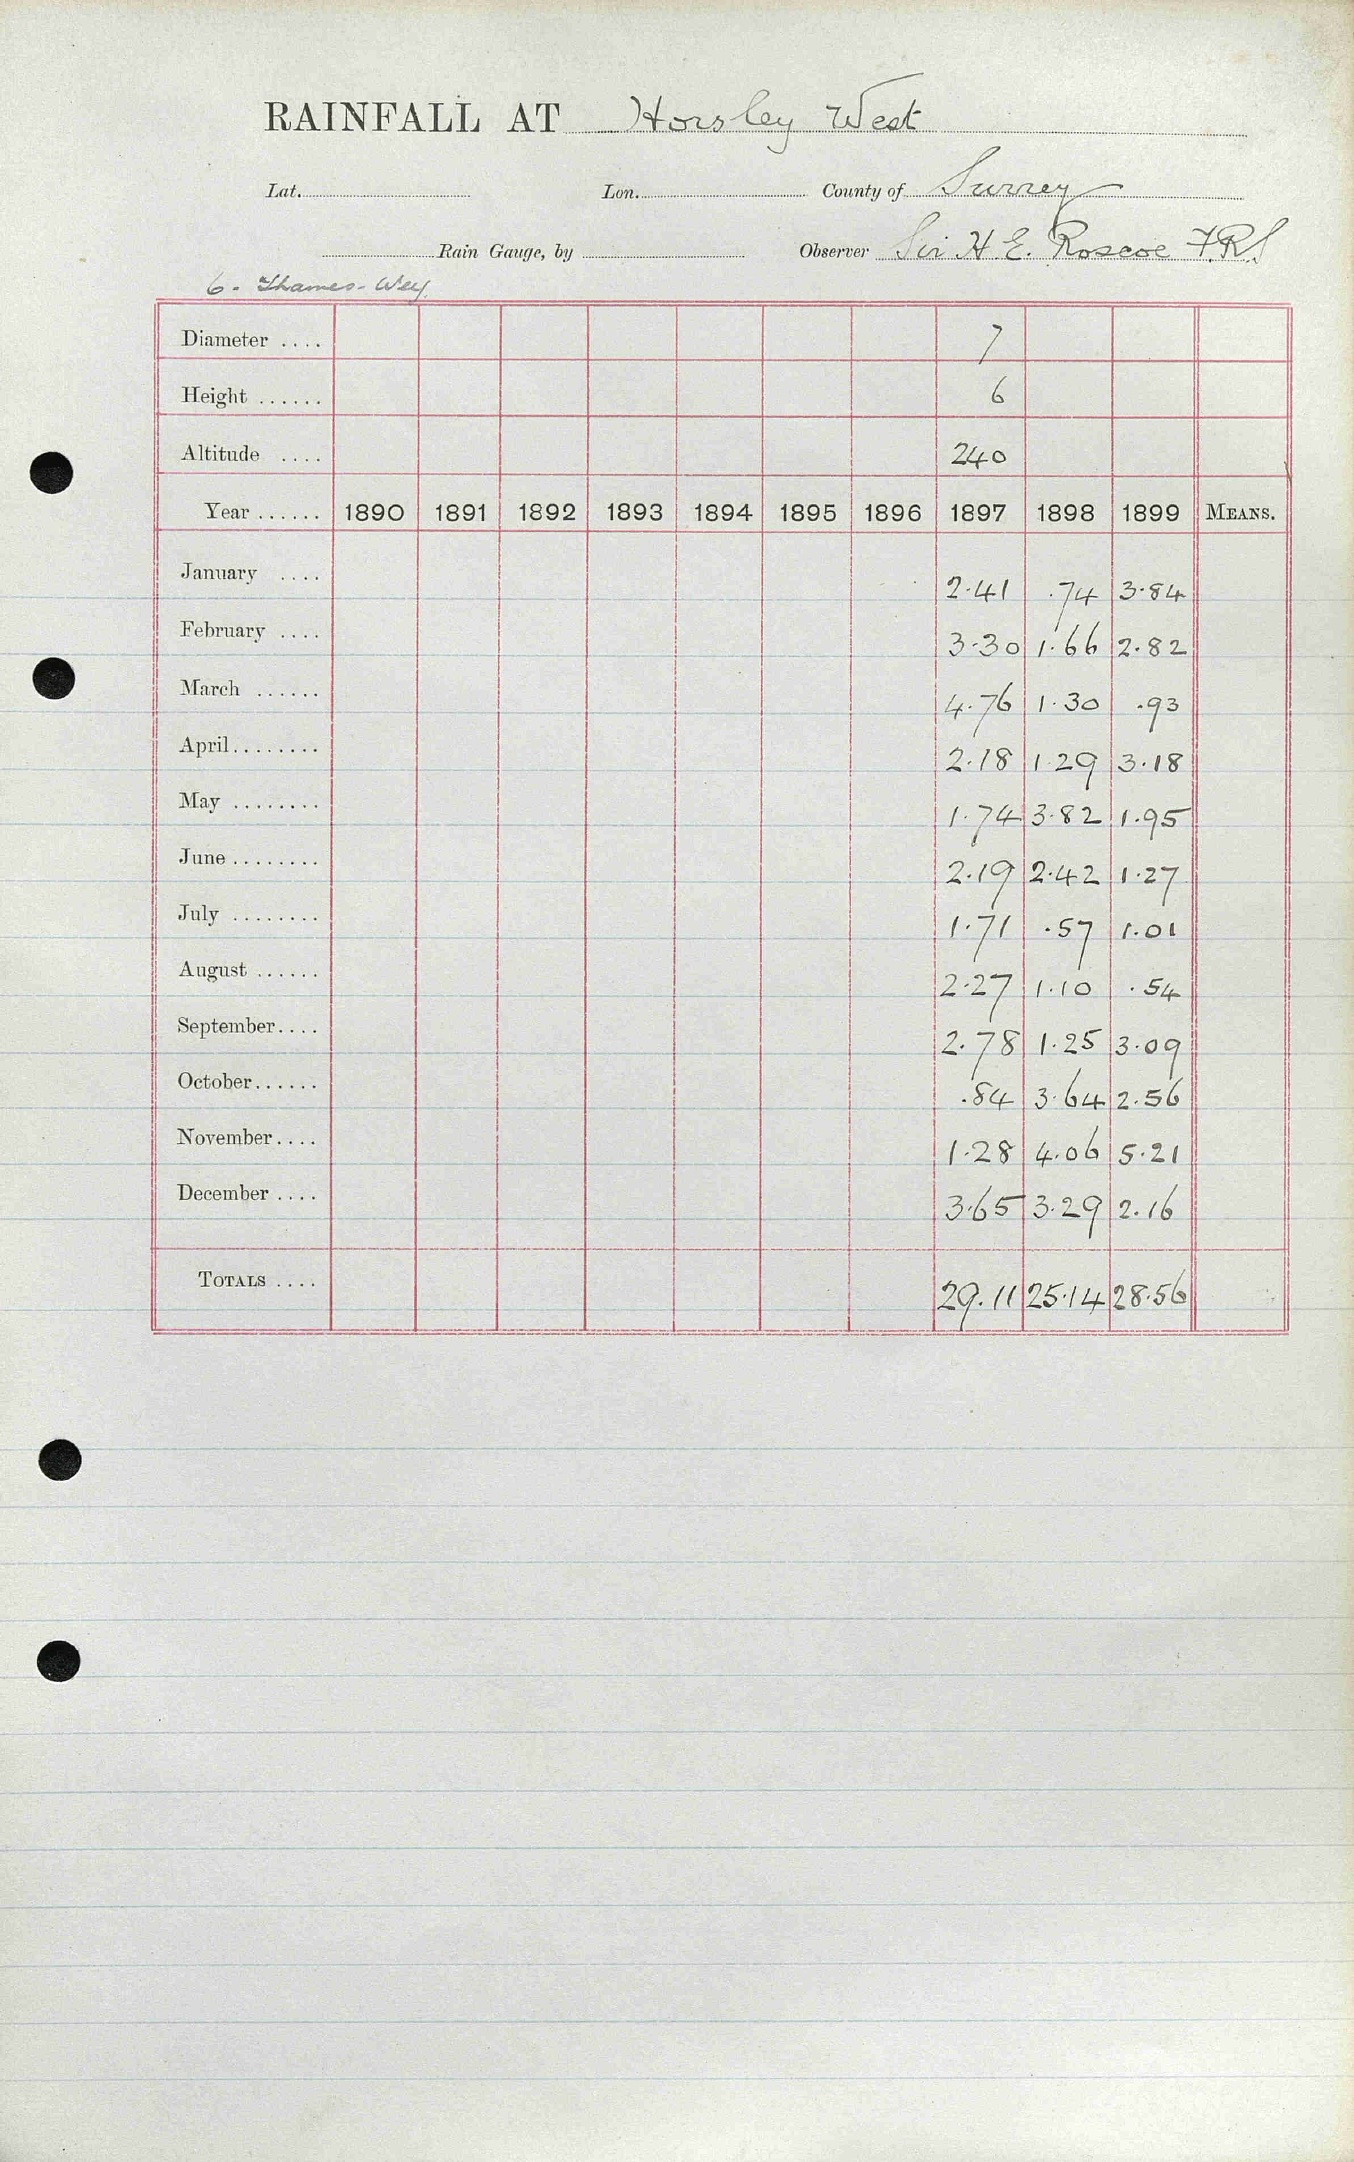 RAINFALL AT Horsley West
Lat. Lon. County of Surrey
Rain Gauge, by Observer Sir H E. Roscoe F.R.S
6. Thames-Wey
Diameter .... 7
Height ...... 6
Altitude .... 240
Year ...... 1890 1891 1892 1893 1894 1895 1896 1897 1898 1899 MEANS.
January .... 2.41 .74 3.84
February .... 3.30 1.66 2.82
March ...... 4.76 1.30 .93
April........ 2.18 1.29 3.18
May ........ 1.74 3.82 1.95
June ........ 2.19 2.42 1.27
July ........ 1.71 .57 1.01
August ...... 2.27 1.10 .54
September.... 2.78 1.25 3.09
October...... .84 3.64 2.56
November.... 1.28 4.06 5.21
December .... 3.65 3.29 2.16
TOTALS .... 29.11 25.14 28.56